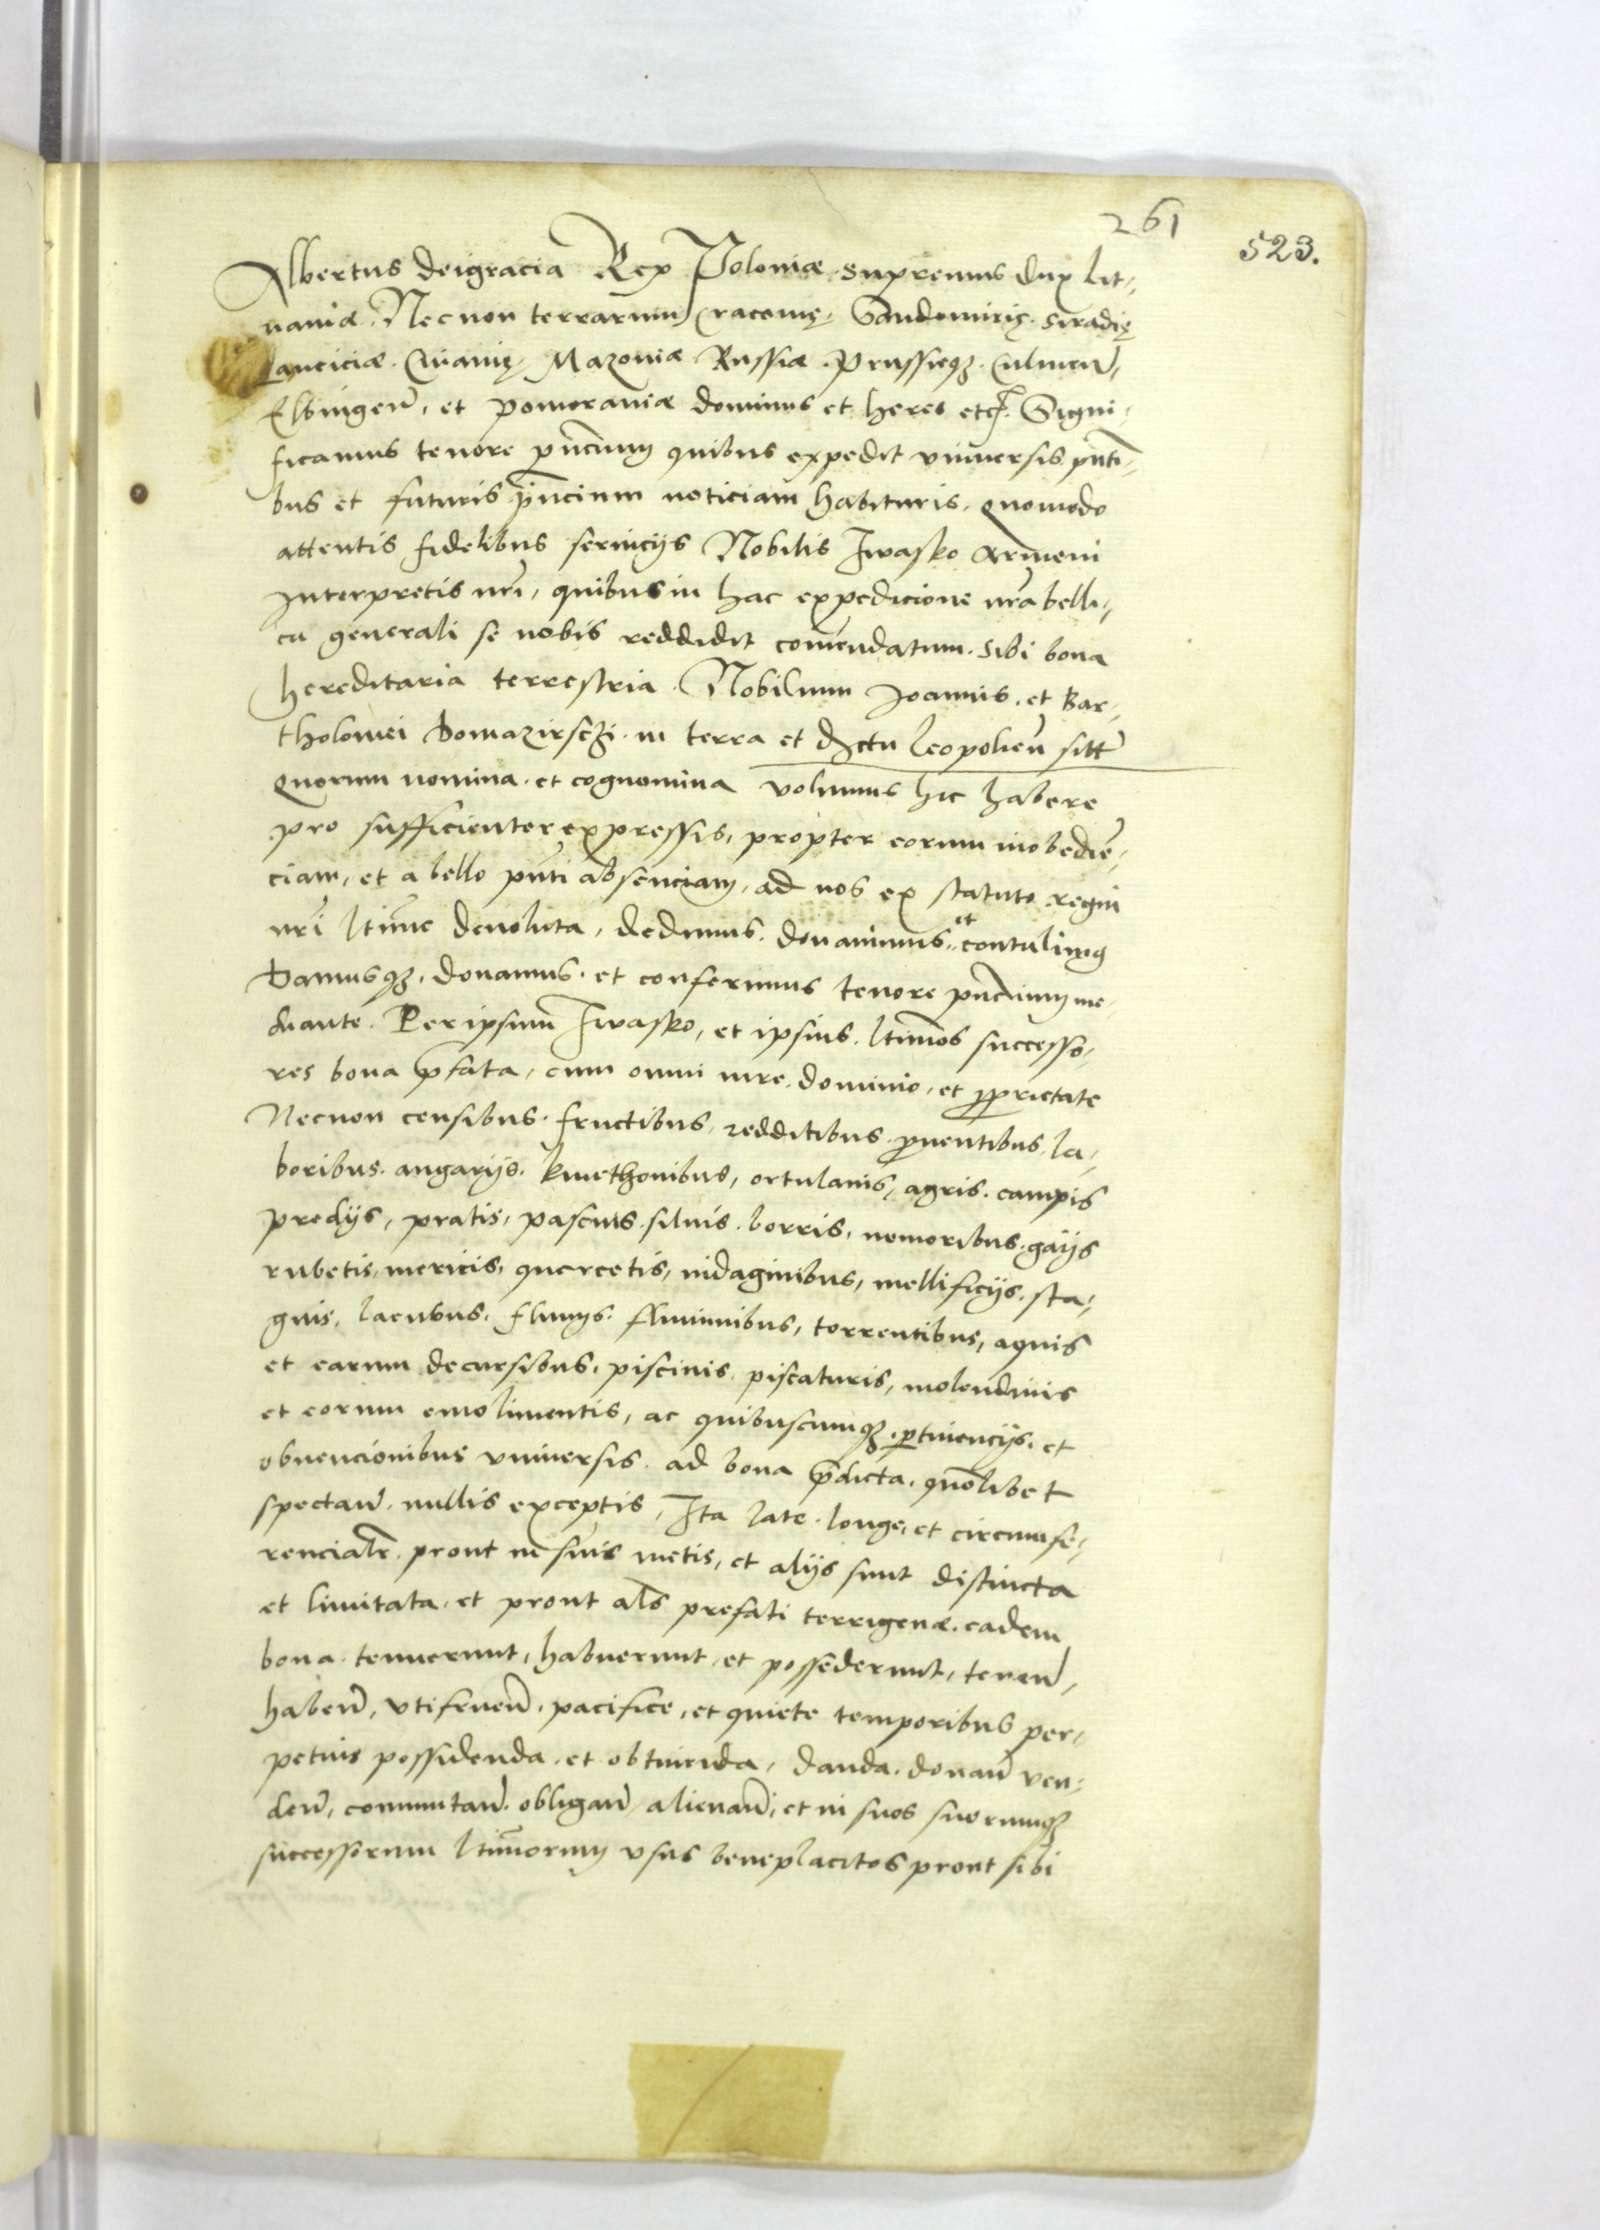 261
523.
Albertus Deigracia Rex Poloniæ supremus dux Lit-
uaniæ. Necnon terrarum Cracouię, Sandomirię. Siradię
Lanciciæ. Cuiauię, Mazouiæ Russiæ. Prussieqꝫ. Culmeñ,
Elbingeñ, et Pomoraniæ dominus et heres etc. Signi-
ficamus tenore pñcium quibus expedit vniuersis pñti-
bus et futuris pñcium noticiam habituris, quomodo
attentis fidelibus seruicijs Nobilis Iwasko Armeni
Interpretis nr̃i, quibus in hac expedicione nr̃a belli-
ca generali se nobis reddidit com̃endatum. sibi bona
hereditaria terrestria. Nobilium Joannis, et Bar-
tholomei Domazirsczi. in terra et dr̃ctu Leopolieñ sitt̃
quorum nomina. et cognomina volumus hic habere
pro sufficienter expressis, propter eorum inobediẽ-
ciam, et a bello pñti absenciam, ad nos ex statuto regni
nr̃i ltim̃e deuoluta, Dedimus. donauimus. et contulimus
Damusqꝫ, donamus. et conferimus tenore pñcium me-
diante. Per ipsum Iwasko, et ipsius. ltimos successo-
res bona p̃fata, cum omni iure. dominio, et ꝓprietate
Necnon censibus. fructibus, redditibus. ꝓuentibus, la-
boribus. angarijs. kmethonibus, ortulanis, agris. campis
predijs, pratis, pascuis. siluis. borris, nemoribus. gaijs
rubetis, mericis, quercetis, indaginibus, mellificijs. sta-
gnis, lacubus, fluuijs. fluminibus, torrentibus, aquis
et earum decursibus, piscinis, piscaturis, molendinis
et eorum emolimentis, ac quibuscumqꝫ. ꝑtinencijs, et
obuencionibus vniuersis. ad bona p̃dicta. quol̃ibet
spectañ. nullis exceptis, Ita late. longe, et circumfe-
rencialr̃. prout in suis metis, et alijs sunt distincta
et limitata, et prout al̃s prefati terrigenæ. eadem
bona. tenuerunt, habuerunt, et possederunt, teneñ,
habeñ, vtifrueñ. pacifice, et quiete temporibus per-
petuis possidenda. et obtinenda, danda. donañ ven-
deñ, commutañ. obligañ alienañ, et in suos suorumqꝫ
successorum ltim̃orum vsus beneplacitos prout sibi